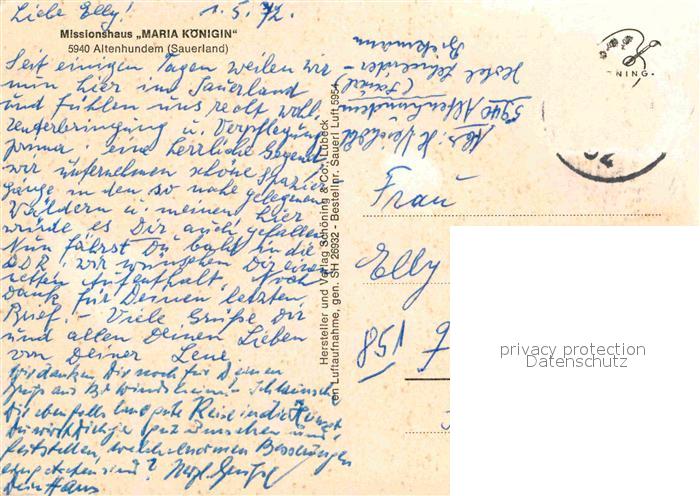 Liebe Elly! 1.5.72.
Missionshaus „MARIA KÖNIGIN"
5940 Altenhundem (Sauerland)
Seit einigen Tagen weilen wir
nun hier im Sauerland
und fühlen uns recht wohl.
Unterbringung u. Verpflegung
prima. eine herrliche Gegend
wir unternehmen schöne Spazier
gänge in den so nahe gelegenen
Wäldern u. meinen, hier
würde es Dir auch gefallen.
Nun fährst Du bald in die
DDR! wir wünschen Dir einen
netten Aufenthalt. Noch
Dank für Deinen letzten
Brief! – Viele Grüße Dir
und allen Deinen Lieben
von Deiner Lene.
Wir danken Dir noch für Deinen
Gruß aus Bad Windsheim!
Dir ebenfalls eine gute Reise in die
Du wirst Dich gut und
feststellen, welche enormen
eingetreten sind? Herzl. Grüße
Dein Hans
Hersteller und Verlag Schöning & Co. Lübeck
en Luftaufnahme, gen. SH 26932 - Bestellnr. Sauerl Luft 5954
Abs.: H.
5940 Altenhundem
Hotel Schneider-
NING
Frau
Elly
158
privacy protection
Datenschutz